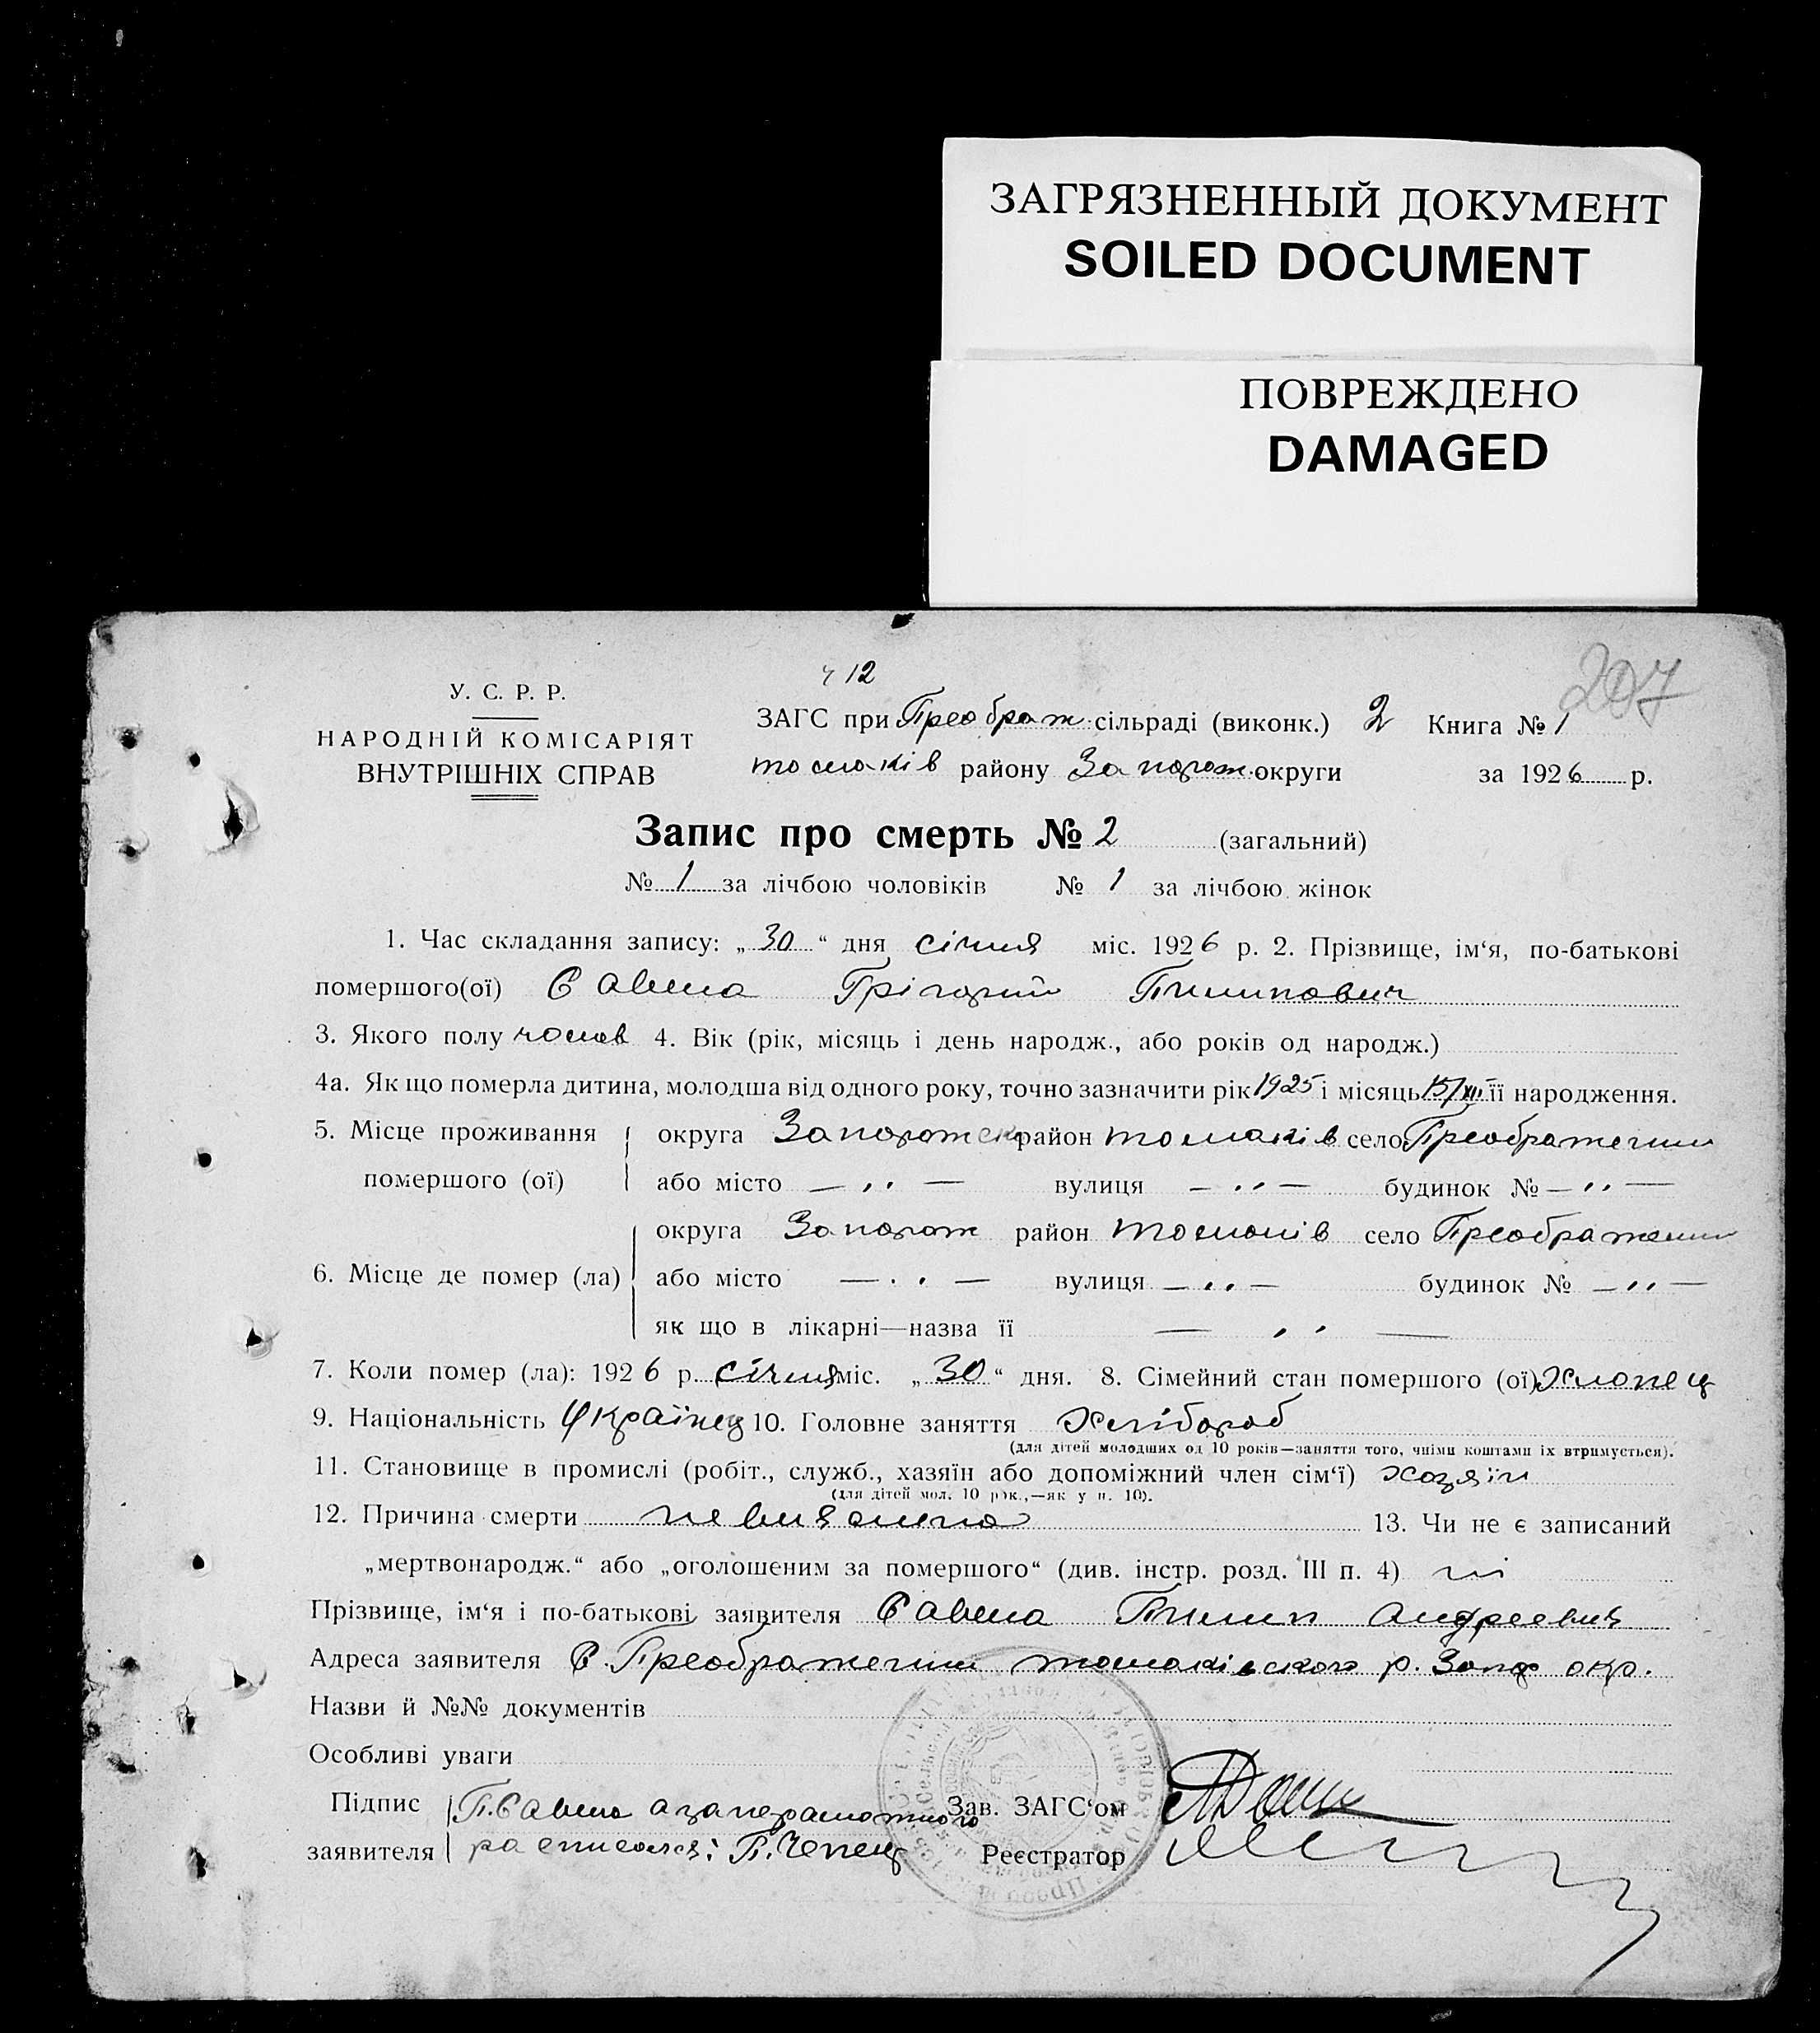 ЗАГРЯЗНЕННЫЙ ДОКУМЕНТ
SOILED DOCUMENT
ПОВРЕЖДЕНО
DAMAGED
ч 12
207
У. С. Р. Р.
НАРОДНІЙ КОМІСАРІЯТ
ВНУТРІШНІХ СПРАВ
ЗАГС при Преображ. сільраді (виконк.) 2 Книга № 1
томаків району Запорож. округи за 1926 р.
Запис про смерть № 2 (загальний)
№ 1 за лічбою чоловіків № 1 за лічбою жінок
1. Час складання запису: „ 30 “ дня січня міс. 1926 р. 2. Прізвище, ім‘я, по-батькові
помершого(ої) Савела Грігорий Пилипович
3. Якого полу чолов 4. Вік (рік, місяць і день народж., або років од народж.)
4а. Як що померла дитина, молодша від одного року, точно зазначити рік 1925 і місяць 15/XII її народження.
5. Місце проживання округа Запорожск район томаків село Преображенки
помершого (ої) або місто — „ — вулиця — „ — будинок № — „ —
округа Запорож район томаків село Преображенки
6. Місце де помер (ла) або місто — „ — вулиця — „ — будинок № — „ —
як що в лікарні—назва її — „ —
7. Коли помер (ла): 1926 р. січня міс. „ 30 “ дня. 8. Сімейний стан помершого (ої) Хлопець
9. Національність Українец 10. Головне заняття Хлібороб
(для дітей молодших од 10 років—заняття того, чиїми коштами їх втримується).
11. Становище в промислі (робіт., служб., хазяїн або допоміжний член сім‘ї) хозяїн
(для дітей мол. 10 рок.,—як у п. 10).
12. Причина смерти невиявлена 13. Чи не є записаний
„мертвонародж.“ або „оголошеним за помершого“ (див. інстр. розд. III п. 4) ні
Прізвище, ім‘я і по-батькові заявителя Савела Пилип Андреевич
Адреса заявителя С. Преображенки томаківского р. Запор окр.
Назви й №№ документів
Особливі уваги
Підпис П. Савела а за неграмотного Зав. ЗАГС‘ом
заявителя расписался: П. Чепец Реєстратор